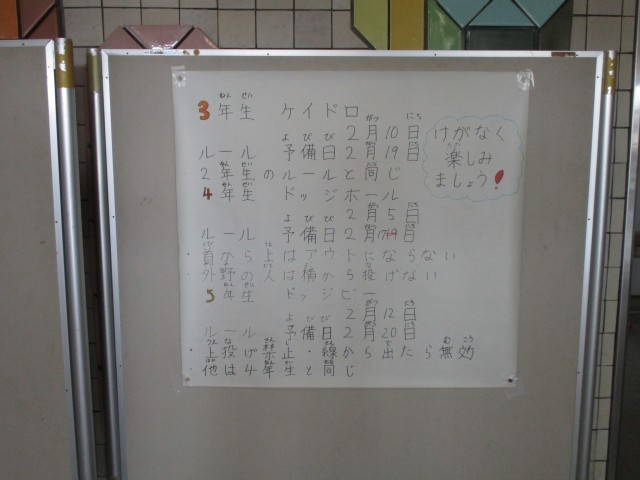 3年生 ケイドロ
2月10日
ルール 予備日2月19日
2年生のルールと同じ
4年生 ドッジボール
2月5日
ルール 予備日2月 日
顔から上はアウトにならない
外野の人は横から投げない
5年生 ドッジビー
2月12日
ルール 予備日2月20日
上投げ禁止・線から出たら無効
他は4年生と同じ
けがなく
楽しみ
ましょう!